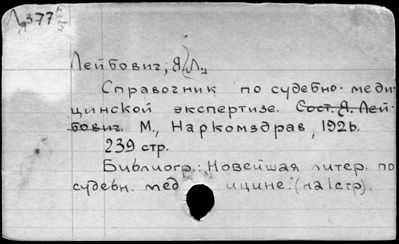 Л377
Лейбович, Я. Л.
Справочник по судебно-меди-
цинской экспертизе. Сост. Я. Лей-
бович. М., Наркомздрав, 1926.
239 стр.
Библиогр.: „Новейшая литер. по
судебн. медицине." (на 1 стр).